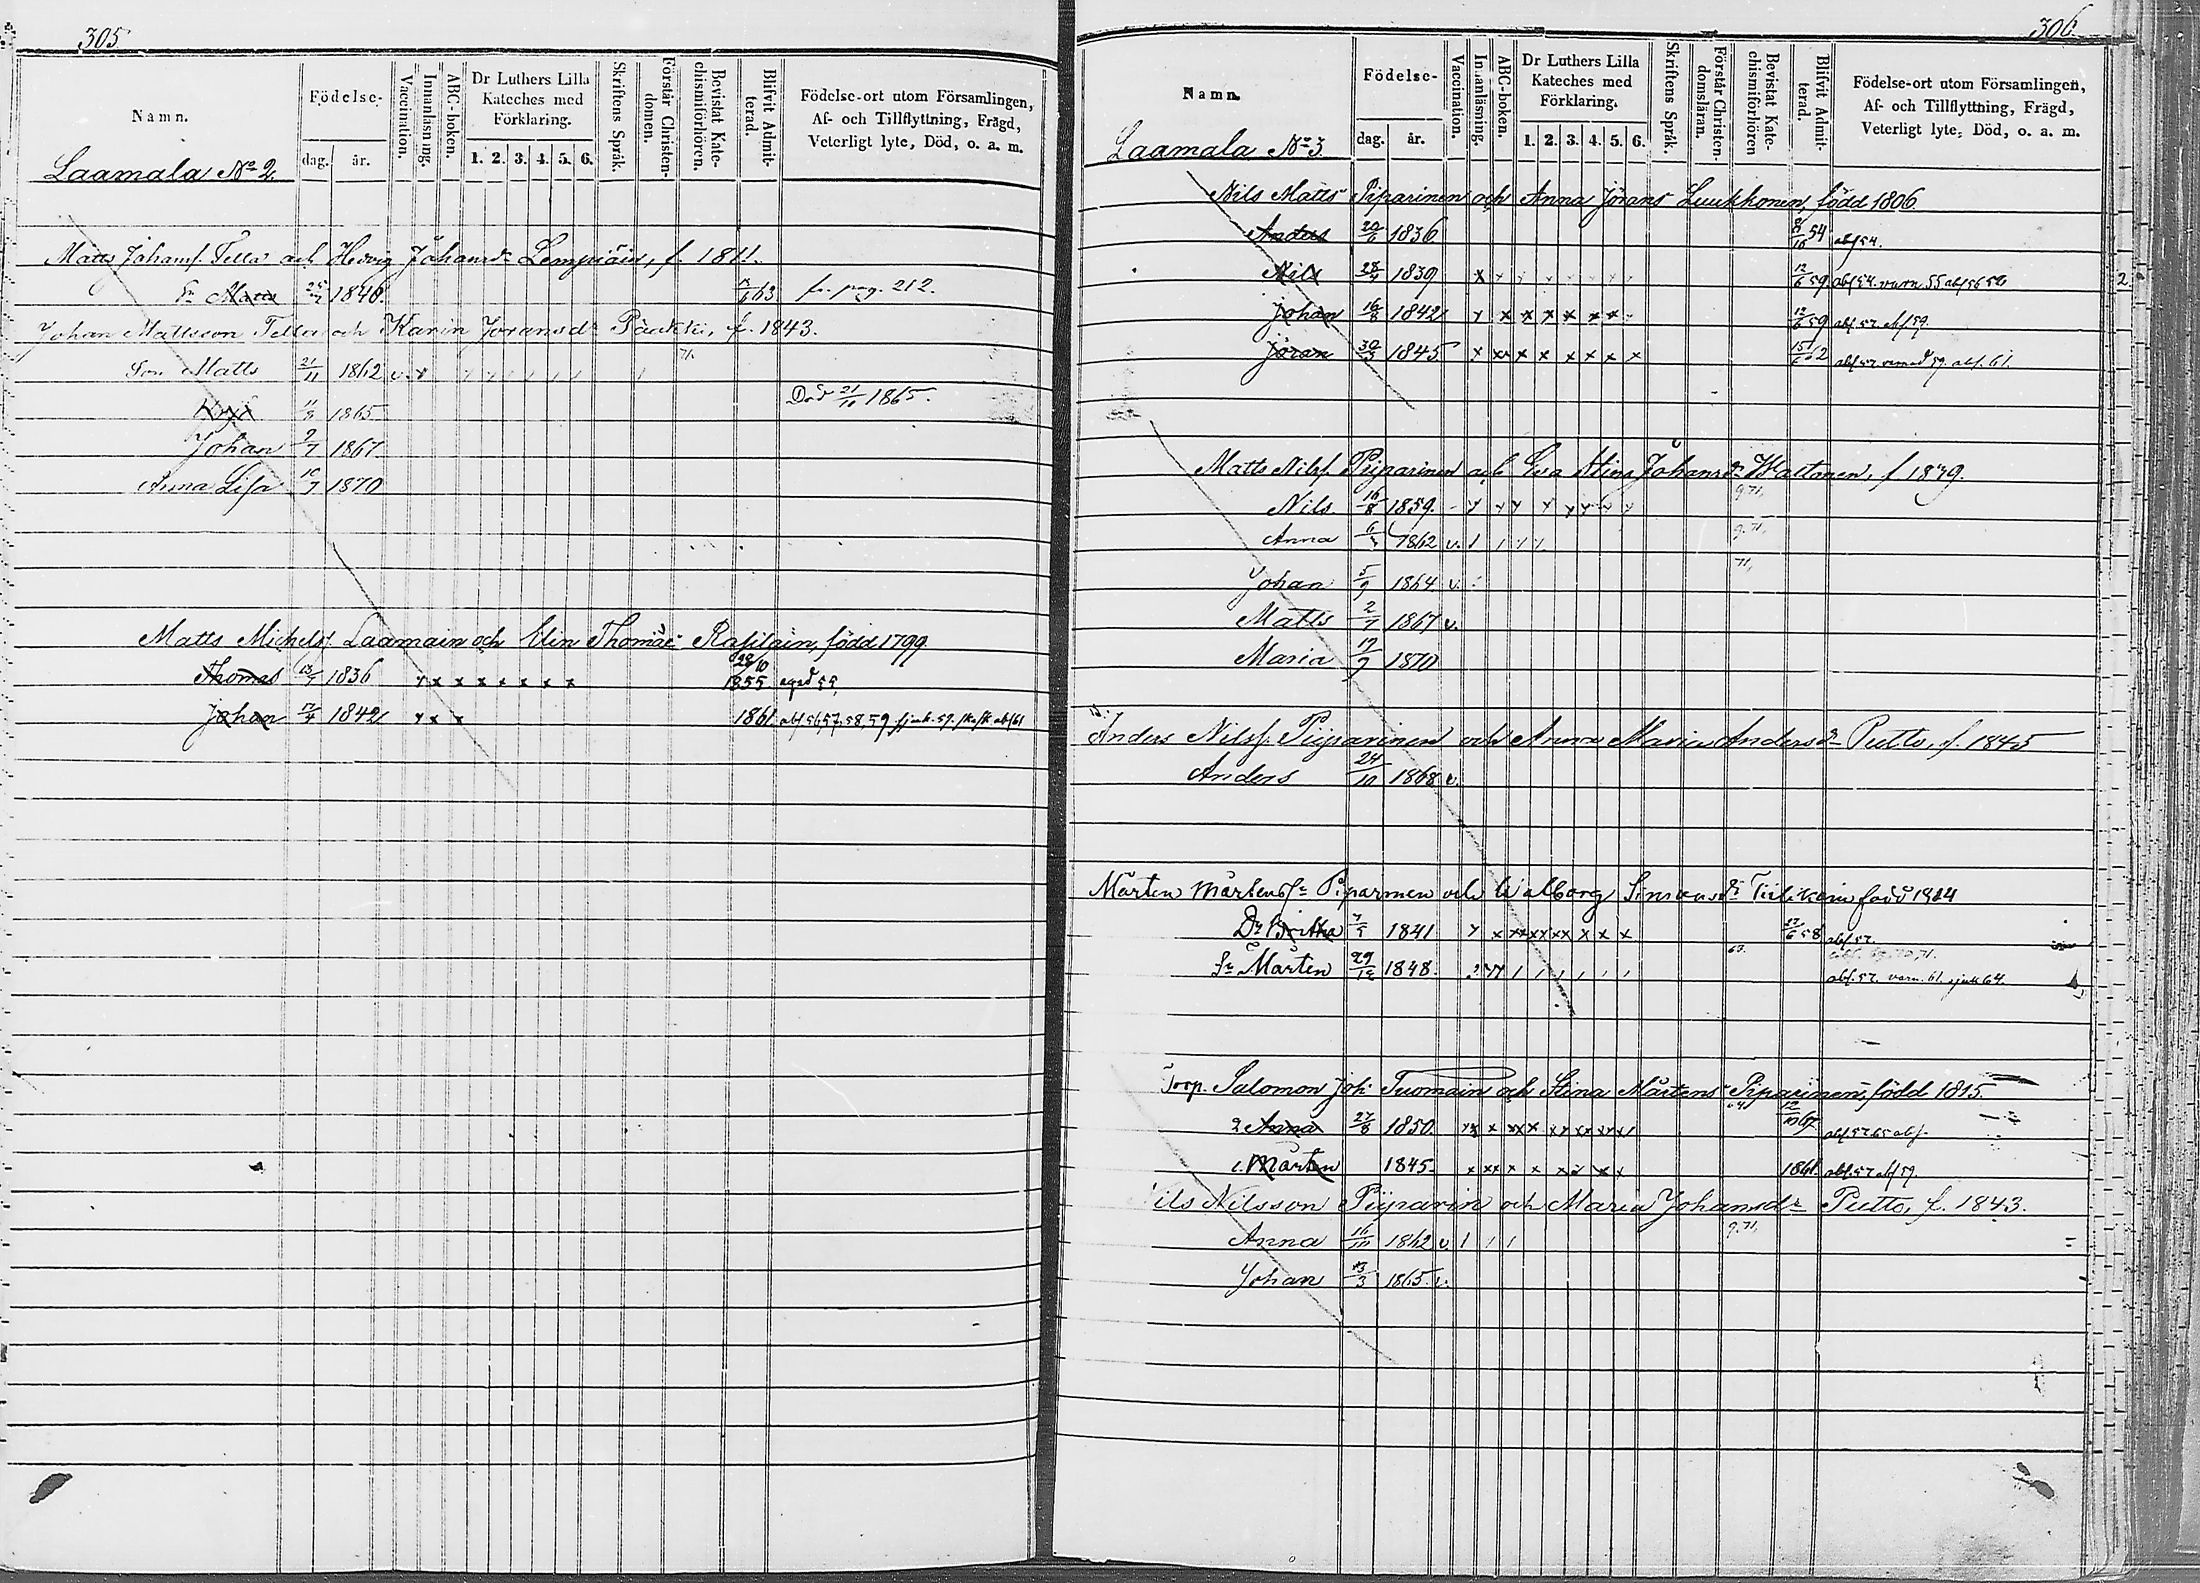 305
Namn.
Födelse-
dag. år.
Vaccination.
Innanläsning.
ABC-boken.
Dr Luthers Lilla Kateches med Förklaring.
1. 2. 3. 4. 5. 6.
Skriftens Språk.
Förstår Christendomen.
Bevistat Katechismiförhören.
Blifvit Admitterad.
Födelse-ort utom Församlingen, Af- och Tillflyttning, Frägd, Veterligt lyte, Död, o. a. m.
Laamala No 2.
Matts Johansf. Tella och Hedvig Johansdr Lempiäin, f. 1811.
Sn Matts 1846. 63 fr. pag. 212.
Johan Mattsson Tella och Karin Jöransdr Päukki, f. 1843.
71.
Son Matts 21/11 1862 v.
11/3 1865 Död 21/10 1865.
Johan 9/7 1867
Anna Lisa 10/7 1870
Matts Michelsf. Laamain och Elin Thomæ Rasilain, född 1799
Thomas 1836 x x x x x x x 28/10 1855.
Johan 1842 x x 1861. abs 56, 57, 58, 59
306.
Namn.
Födelse-
dag. år.
Vaccination.
Innanläsning.
ABC-boken.
Dr Luthers Lilla Kateches med Förklaring.
1. 2. 3. 4. 5. 6.
Skriftens Språk.
Förstår Christendomsläran.
Bevistat Katechismiförhören
Blifvit Admitterad.
Födelse-ort utom Församlingen, Af- och Tillflyttning, Frägd, Veterligt lyte, Död, o. a. m.
Laamala No 3.
Nils Matts Piparinen och Anna Jörans Luukkonen, född 1806
Anders 20/6 1836 54 abs 54.
Nils 28/4 1839 x 12/6 59 abs 54. varn. 55 abs 56 58
2
Johan 16/8 1842 x x x x x x x 12/6 59 abs. 57. abs 59.
Jöran 30/3 1845 x x x x x x x x 15/6 62 abs. 57 59. abs. 61.
Matts Nilsf. Piiparinen och Eva Stina Johansdr Wattonen, f. 1839.
g. 71,
Nils 16/8 1859.
g. 71,
Anna 1862 v.
71,
Johan 5/9 1864 v.
Matts 2/7 1867 v.
Maria 17/9 1870
Anders Nilsf. Piiparinen och Anna Maria Andersdr Putto, f. 1845
Anders 24/10 1868 v.
Mårten Mårtensf. Piparinen och Walborg Simonsdr Tiilikain född 1824
Dr Britha 1841 x x x x x x x x 27/6 58 abs 57.
63.
Sn Mårten 29/12 1848. abs. 57. varn. 61. sjuk 64.
Torp. Salomon Joh. Tuomain och Stina Mårtens Piparinen, född 1815.
64
2 Anna 27/8 1850. 12/10 67 abs. 57. 65 abs.
1. Mårten 1845. x x x x x x x 1861 abs. 57 abs 59.
Nils Nilsson Piiparin och Maria Johansdr Putto, f. 1843.
g. 71,
Anna 16/10 1862 v.
Johan 13/3 1865. v.